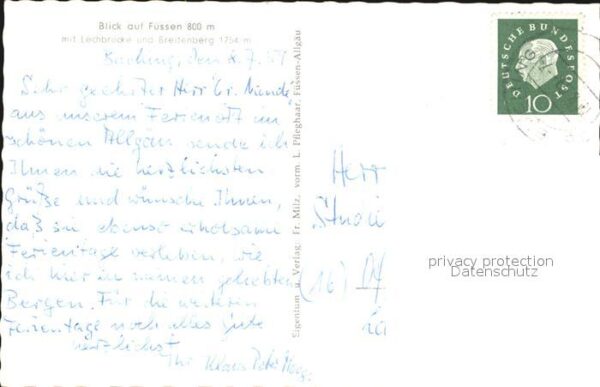 Blick auf Füssen 800 m
mit Lechbrücke und Breitenberg 1754 m
den 2.7.59
Sehr geehrter Herr Dr.
aus unserem Ferienort im
schönen Allgäu sende ich
Ihnen die herzlichsten
Grüße und wünsche Ihnen,
daß sie ebenso erholsame
Ferientage verleben, wie
ich hier in meinen geliebten
Bergen. Für die weiteren
Ferientage noch alles Gute
herzlichst
Ihr Klaus
Eigentum u. Verlag: Fr. Milz, vorm L. Pfleghaar, Füssen-Allgäu
DEUTSCHE BUNDESPOST
10
Herr
(16)
privacy protection
Datenschutz